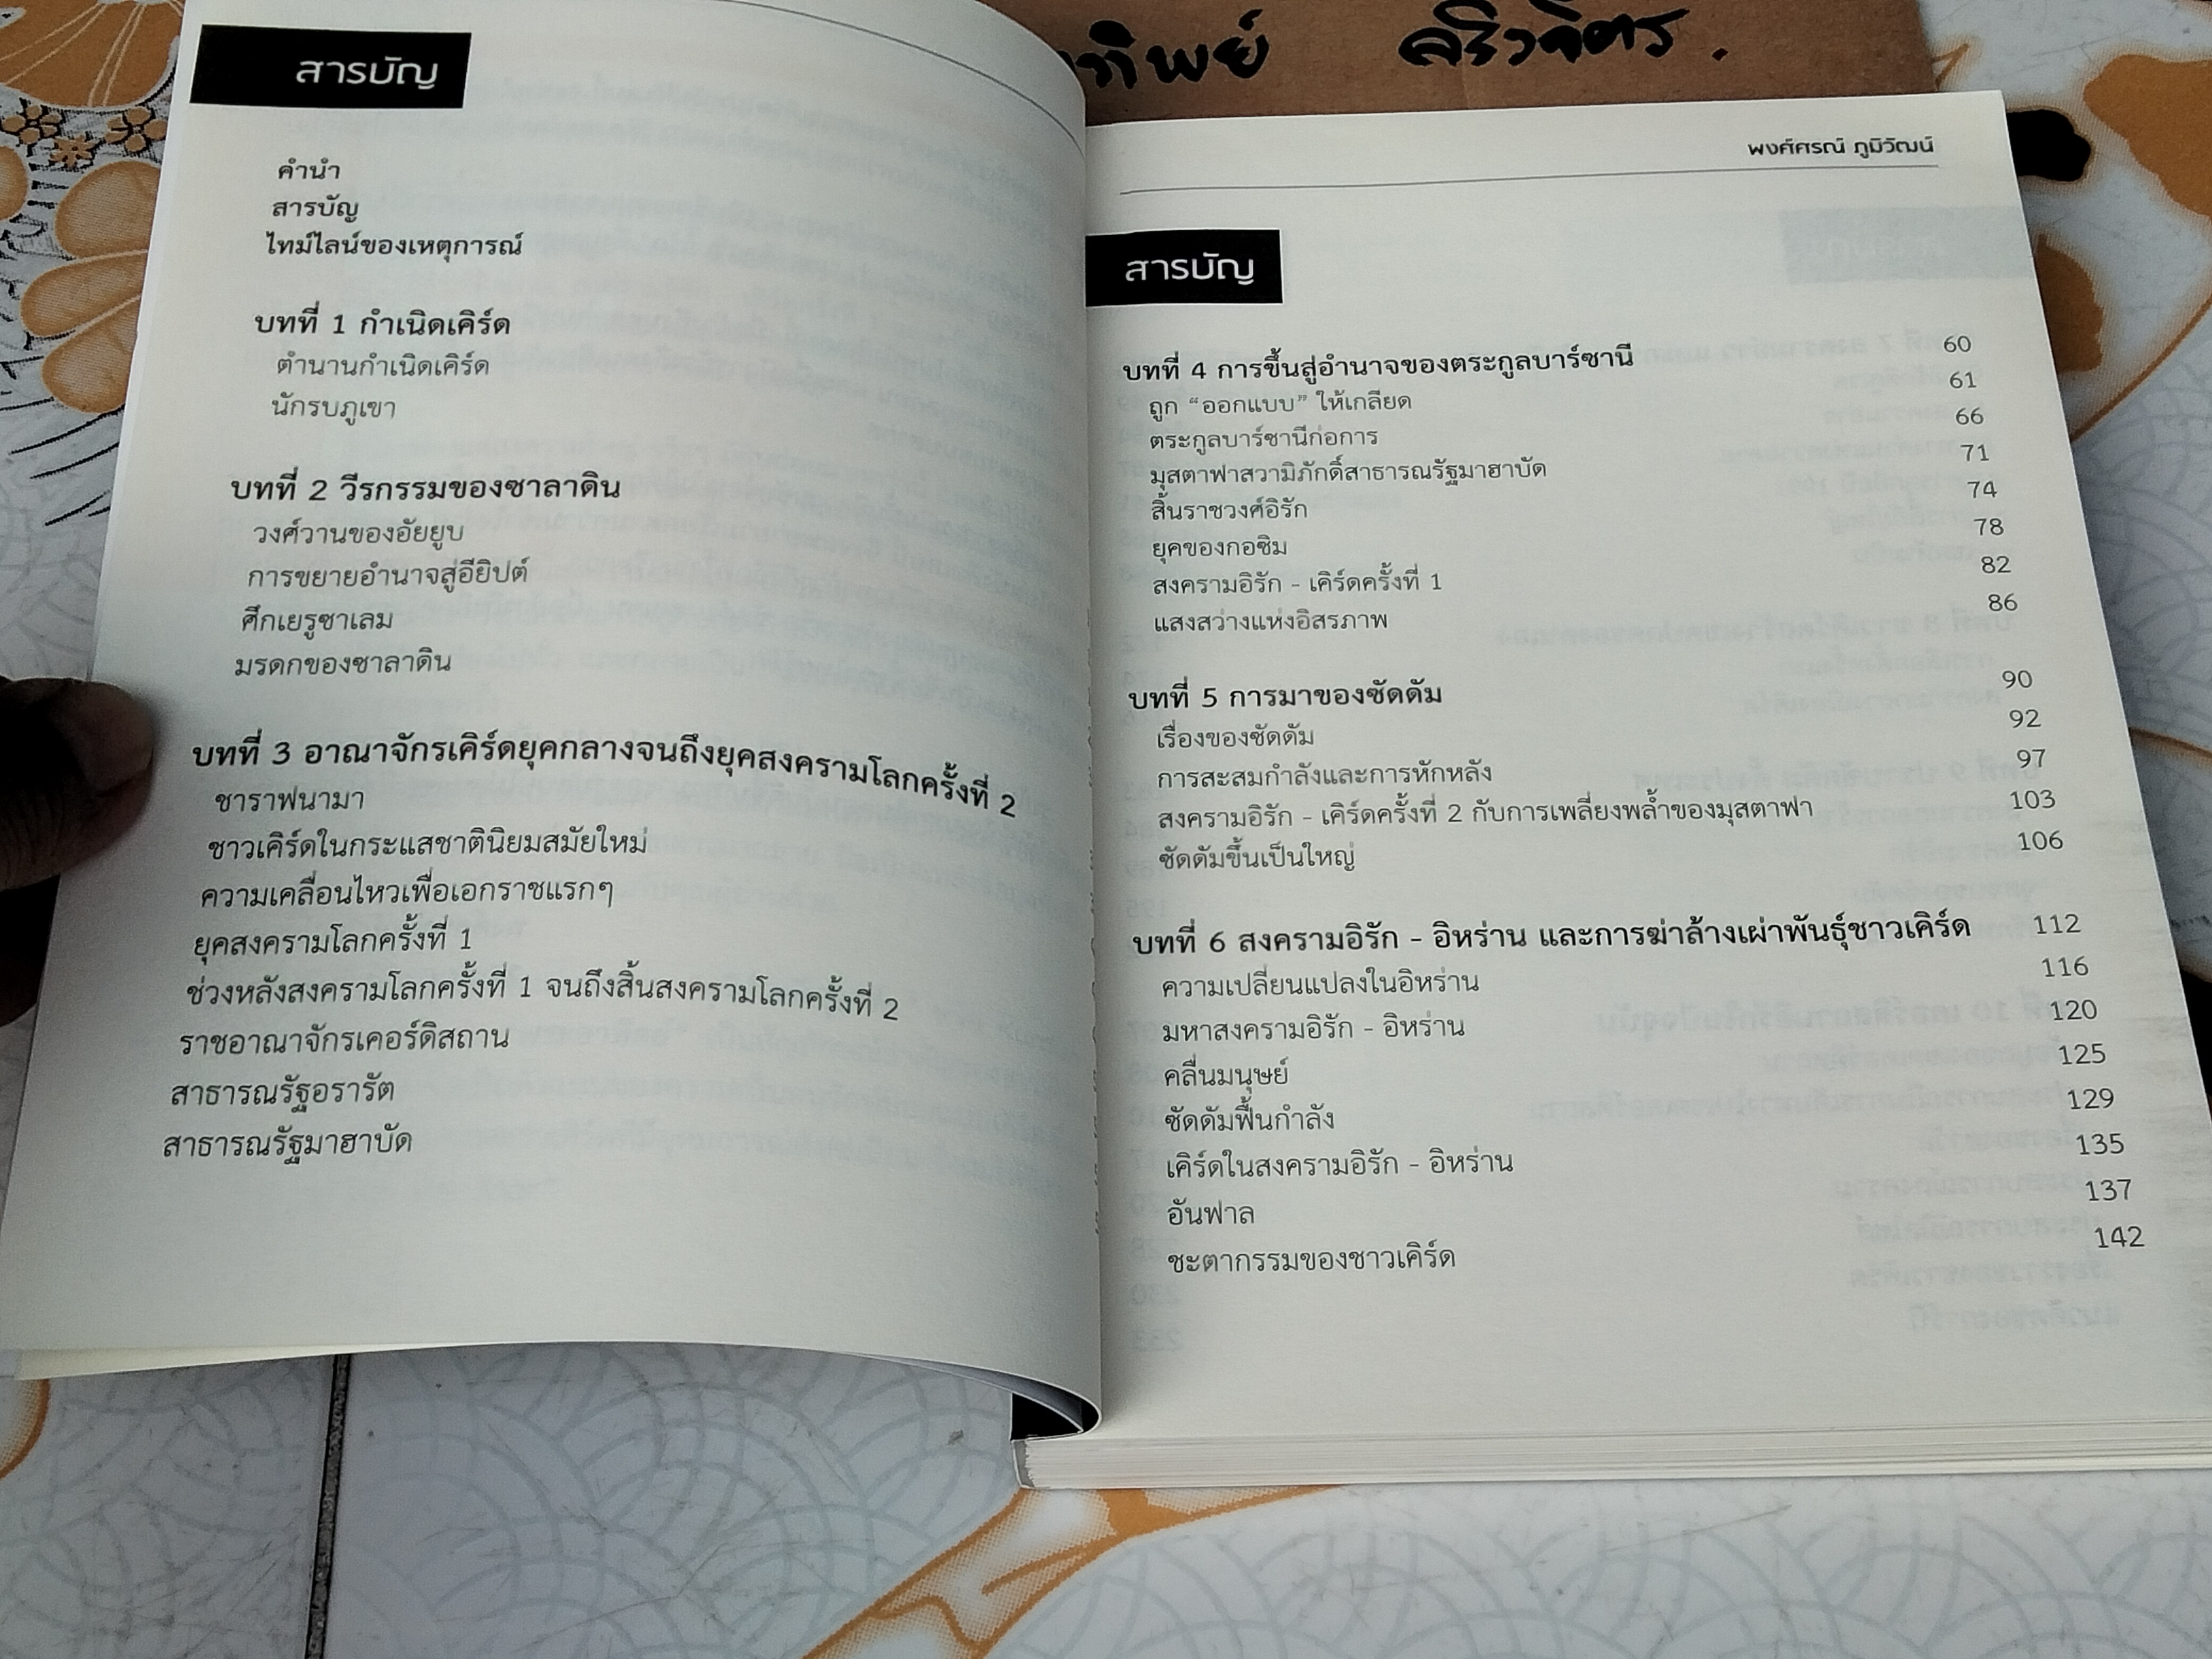 สารบัญ
คำนำ
สารบัญ
ไทม์ไลน์ของเหตุการณ์
บทที่ 1 กำเนิดเคิร์ด
ตำนานกำเนิดเคิร์ด
นักรบภูเขา
บทที่ 2 วีรกรรมของซาลาดิน
วงศ์วานของอัยยูบ
การขยายอำนาจสู่อียิปต์
ศึกเยรูซาเลม
มรดกของซาลาดิน
บทที่ 3 อาณาจักรเคิร์ดยุคกลางจนถึงยุคสงครามโลกครั้งที่ 2
ชาราฟนามา
ชาวเคิร์ดในกระแสชาตินิยมสมัยใหม่
ความเคลื่อนไหวเพื่อเอกราชแรกๆ
ยุคสงครามโลกครั้งที่ 1
ช่วงหลังสงครามโลกครั้งที่ 1 จนถึงสิ้นสงครามโลกครั้งที่ 2
ราชอาณาจักรเคอร์ดิสถาน
สาธารณรัฐอรารัต
สาธารณรัฐมาฮาบัด
พงศ์ศรณ์ ภูมิวัฒน์
สารบัญ
บทที่ 4 การขึ้นสู่อำนาจของตระกูลบาร์ซานี 60
ถูก “ออกแบบ” ให้เกลียด 61
ตระกูลบาร์ซานีก่อการ 66
มุสตาฟาสวามิภักดิ์สาธารณรัฐมาฮาบัด 71
สิ้นราชวงศ์อิรัก 74
ยุคของกอซิม 78
สงครามอิรัก - เคิร์ดครั้งที่ 1 82
แสงสว่างแห่งอิสรภาพ 86
บทที่ 5 การมาของซัดดัม 90
เรื่องของซัดดัม 92
การสะสมกำลังและการหักหลัง 97
สงครามอิรัก - เคิร์ดครั้งที่ 2 กับการเพลี่ยงพล้ำของมุสตาฟา 103
ซัดดัมขึ้นเป็นใหญ่ 106
บทที่ 6 สงครามอิรัก - อิหร่าน และการฆ่าล้างเผ่าพันธุ์ชาวเคิร์ด 112
ความเปลี่ยนแปลงในอิหร่าน 116
มหาสงครามอิรัก - อิหร่าน 120
คลื่นมนุษย์ 125
ซัดดัมฟื้นกำลัง 129
เคิร์ดในสงครามอิรัก - อิหร่าน 135
อันฟาล 137
ชะตากรรมของชาวเคิร์ด 142